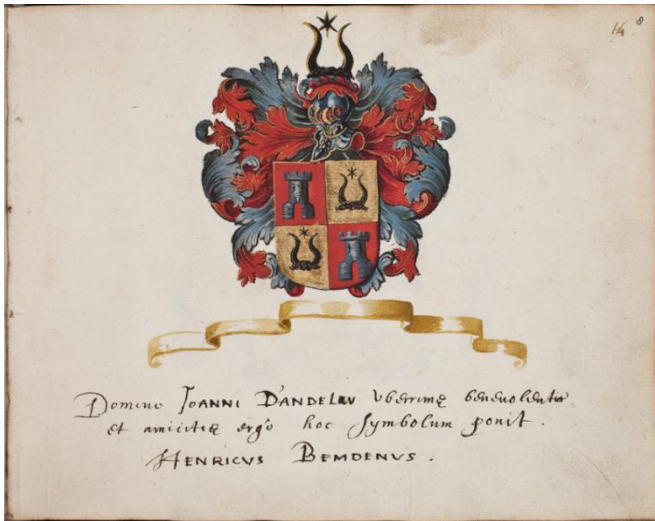 16 8
Domino JOANNI D'ANDELEU Vberrimę beneuolentiæ
et amicitię ergò hoc Symbolum ponit.
HENRICVS BEMDENVS.